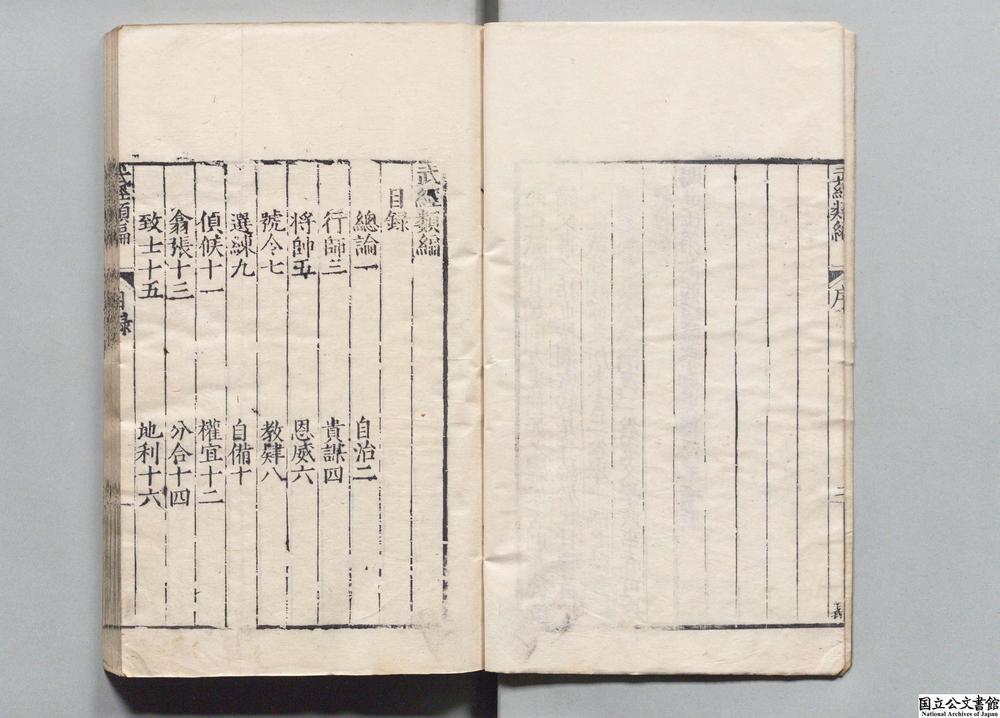 武經類編
序
二
義
武經類編
目録
總論一 自治二
行師三 貴謀四
将帥五 恩威六
號令七 教肄八
選練九 自備十
偵候十一 權宜十二
翕張十三 分合十四
致士十五 地利十六
武經類編
目録
一
国立公文書館
National Archives of Japan